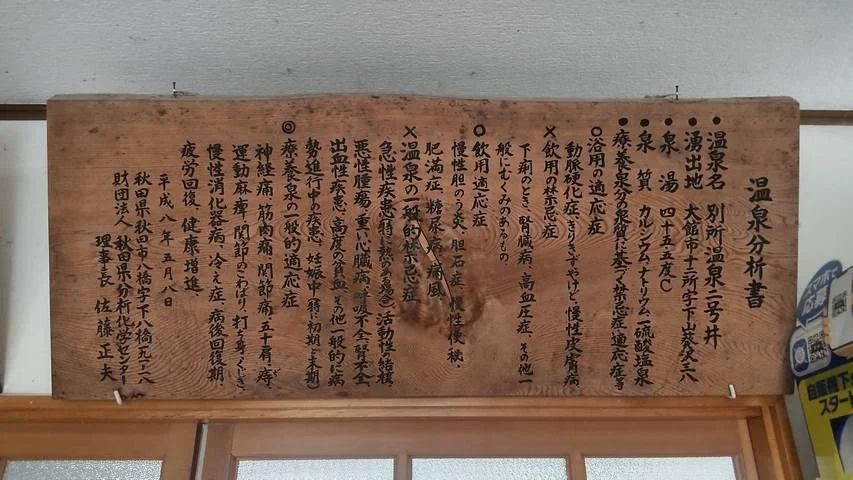 温泉分析書
●温泉名 別所温泉二号井
●湧出地 大館市十二所字下山葵沢三八
●泉湯 四十五.五度C
●泉質 カルシウム、ナトリウム-硫酸塩泉
●療養泉分の泉質に基づく禁忌症、適応症等
○浴用の適応症
動脈硬化症、きりきず、やけど、慢性皮膚病
×飲用の禁忌症
下痢のとき、腎臓病、高血圧症、その他一
般にむくみのあるもの、
○飲用適応症
慢性胆のう炎、胆石症、慢性便秘、
肥満症、糖尿病、痛風、
×温泉の一般的禁忌症
急性疾患(特に熱のある場合)活動性の結核、
悪性腫瘍、重い心臓病、呼吸不全、腎不全、
出血性疾患、高度の貧血、その他一般的に病
勢進行中の疾患、妊娠中(特に初期と末期)
◎療養泉の一般的適応症
神経痛、筋肉痛、関節痛、五十肩、痔、
運動麻痺、関節のこわばり、打ち身、くじき、
慢性消化器病、冷え症、病後回復期、
疲労回復、健康増進、
平成八年五月八日
秋田県秋田市八橋字下八橋九一-八
財団法人 秋田県分析化学センター
理事長 佐藤正夫
スマホで
応募
自販機下の
スタート